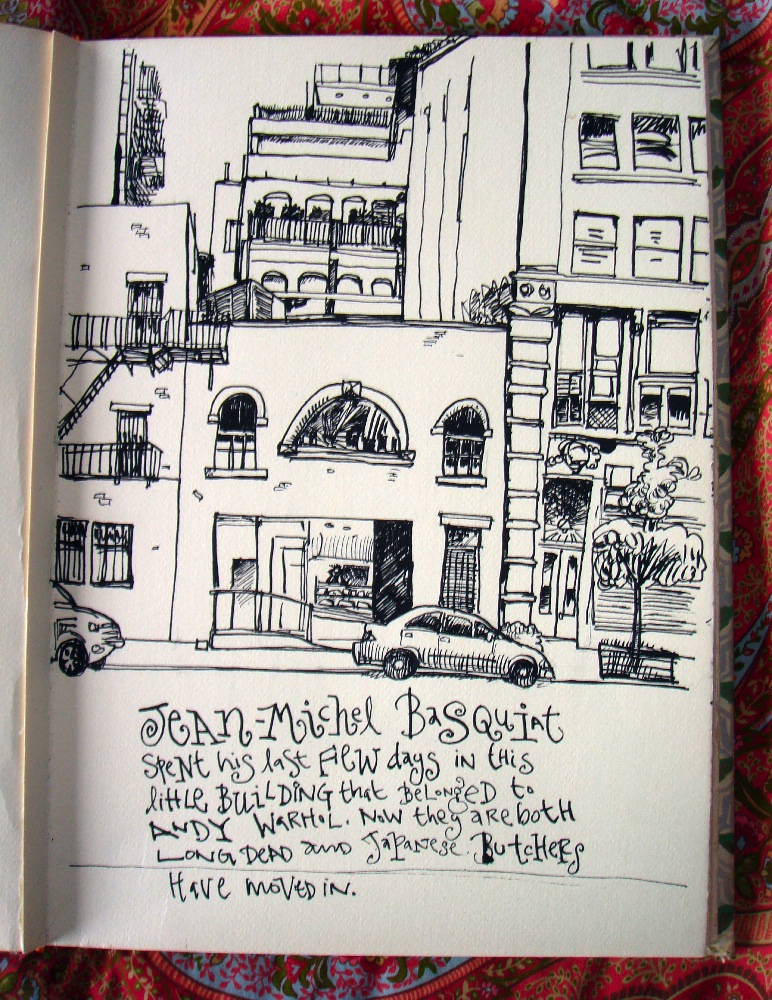 Jean-Michel Basquiat
spent his last few days in this
little building that belonged to
Andy Warhol. Now they are both
long dead and Japanese Butchers
Have moved in.